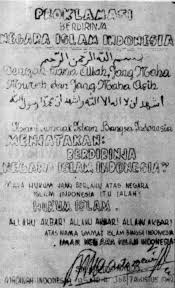 PROKLAMASI
BERDIRINJA
NEGARA ISLAM INDONESIA
بسم الله الرحمن الرحيم
Dengan Nama Allah Jang Maha
Murah dan Jang Maha Asih
اشهد ان لا اله الا الله واشهد ان محمدا رسول الله
Kami, Ummat Islam Bangsa Indonesia
MENJATAKAN:
BERDIRINJA
NEGARA ISLAM INDONESIA
MAKA HUKUM JANG BERLAKU ATAS NEGARA
ISLAM INDONESIA ITU, IALAH:
HUKUM ISLAM
ALLAHU AKBAR! ALLAHU AKBAR! ALLAHU AKBAR!
ATAS NAMA UMMAT ISLAM BANGSA INDONESIA
IMAM NEGARA ISLAM INDONESIA
MADINAH-INDONESIA